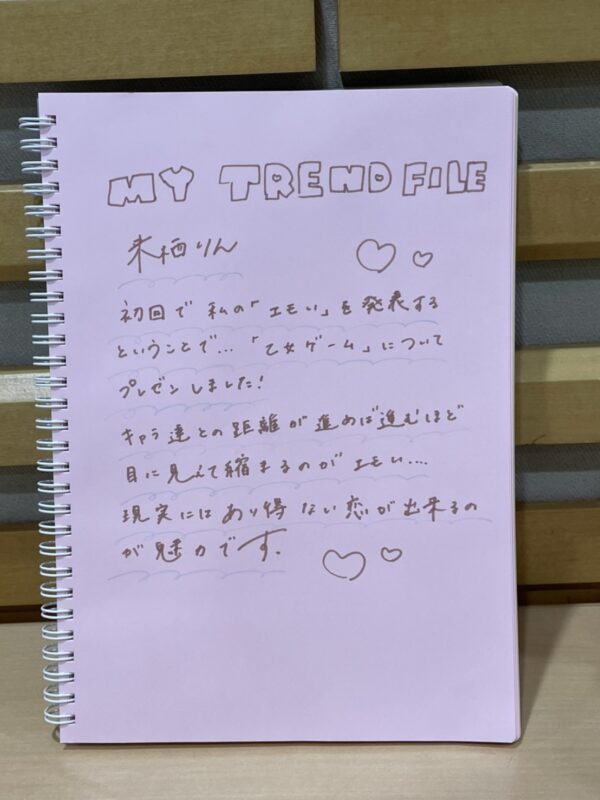 MY TREND FILE
来栖りん
初回で私の「エモい」を発表する
ということで…「乙女ゲーム」について
プレゼンしました!
キャラ達との距離が進めば進むほど
目に見えて縮まるのがエモい….
現実にはあり得ない恋が出来るの
が魅力です.